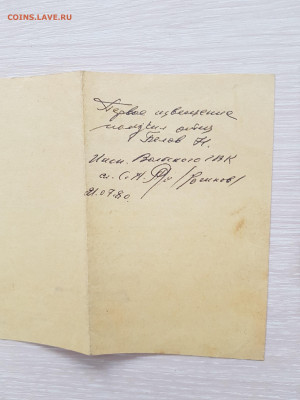 COINS.LAVE.RU
Первое извещение
получил отец
Белов Н.
Инсп. Вольского ГВК
21.07.80